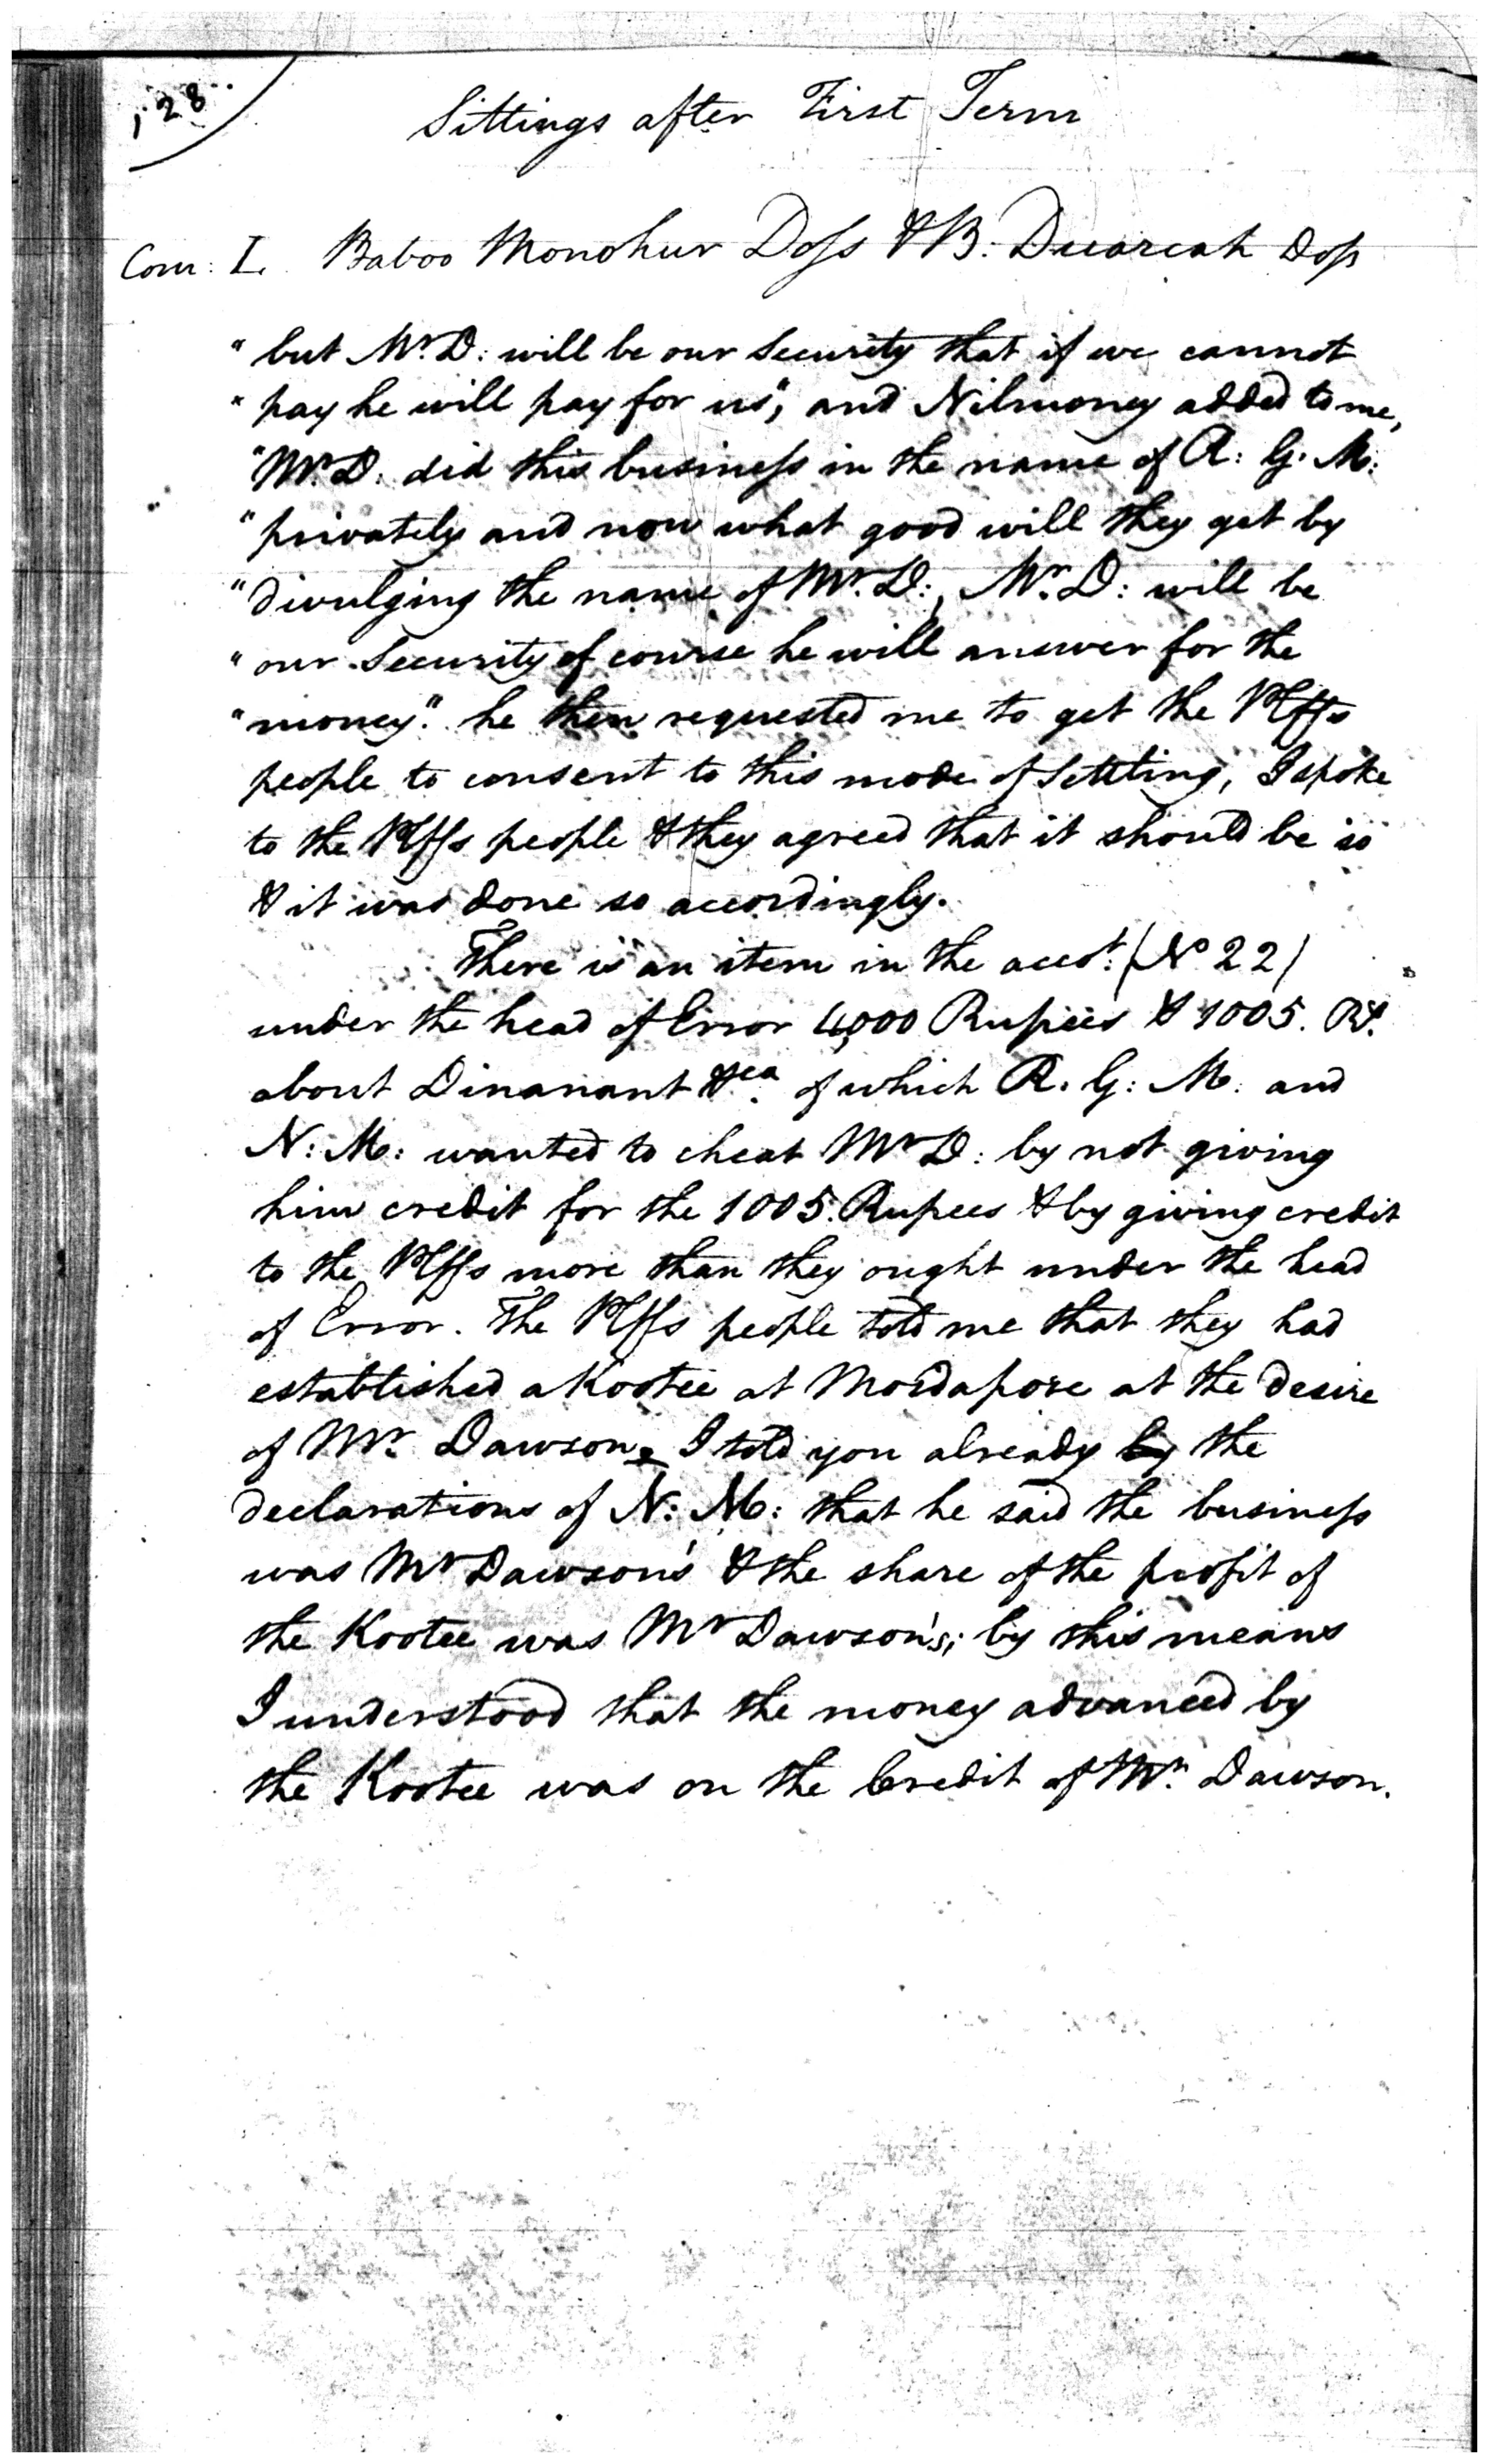 128
Sittings after First Term
Com: I. Baboo Monohur Doſs & B: Duarcah Doſs
" but Mr. D: will be our Security that if we cannot
" pay he will pay for us", and Nilmoney added to me,
" Mr. D. did this buſineſs in the name of R: G. M:
" privately and now what good will they get by
" divulging the name of Mr. D:, Mr. D: will be
" our Security of course he will answer for the
" money". he then requested me to get the Plffs
people to consent to this mode of Settling, I spoke
to the Plffs people & they agreed that it should be so
& it was done so accordingly.
There is an item in the accot. (No 22)
under the head of Error 4,000 Rupees & 1005. Rs.
about Dinanant &ca. of which R. G: M. and
N: M: wanted to cheat Mr D: by not giving
him credit for the 1005. Rupees & by giving credit
to the Plffs more than they ought under the head
of Error. The Plffs people told me that they had
established a Kootee at Mordapore at the desire
of Mr. Dawson, I told you already by the
declarations of N: M: that he said the buſineſs
was Mr Dawson's & the share of the profit of
the Kootee was Mr Dawson's; by this means
I understood that the money advanced by
the Kootee was on the Credit of Mr. Dawson.